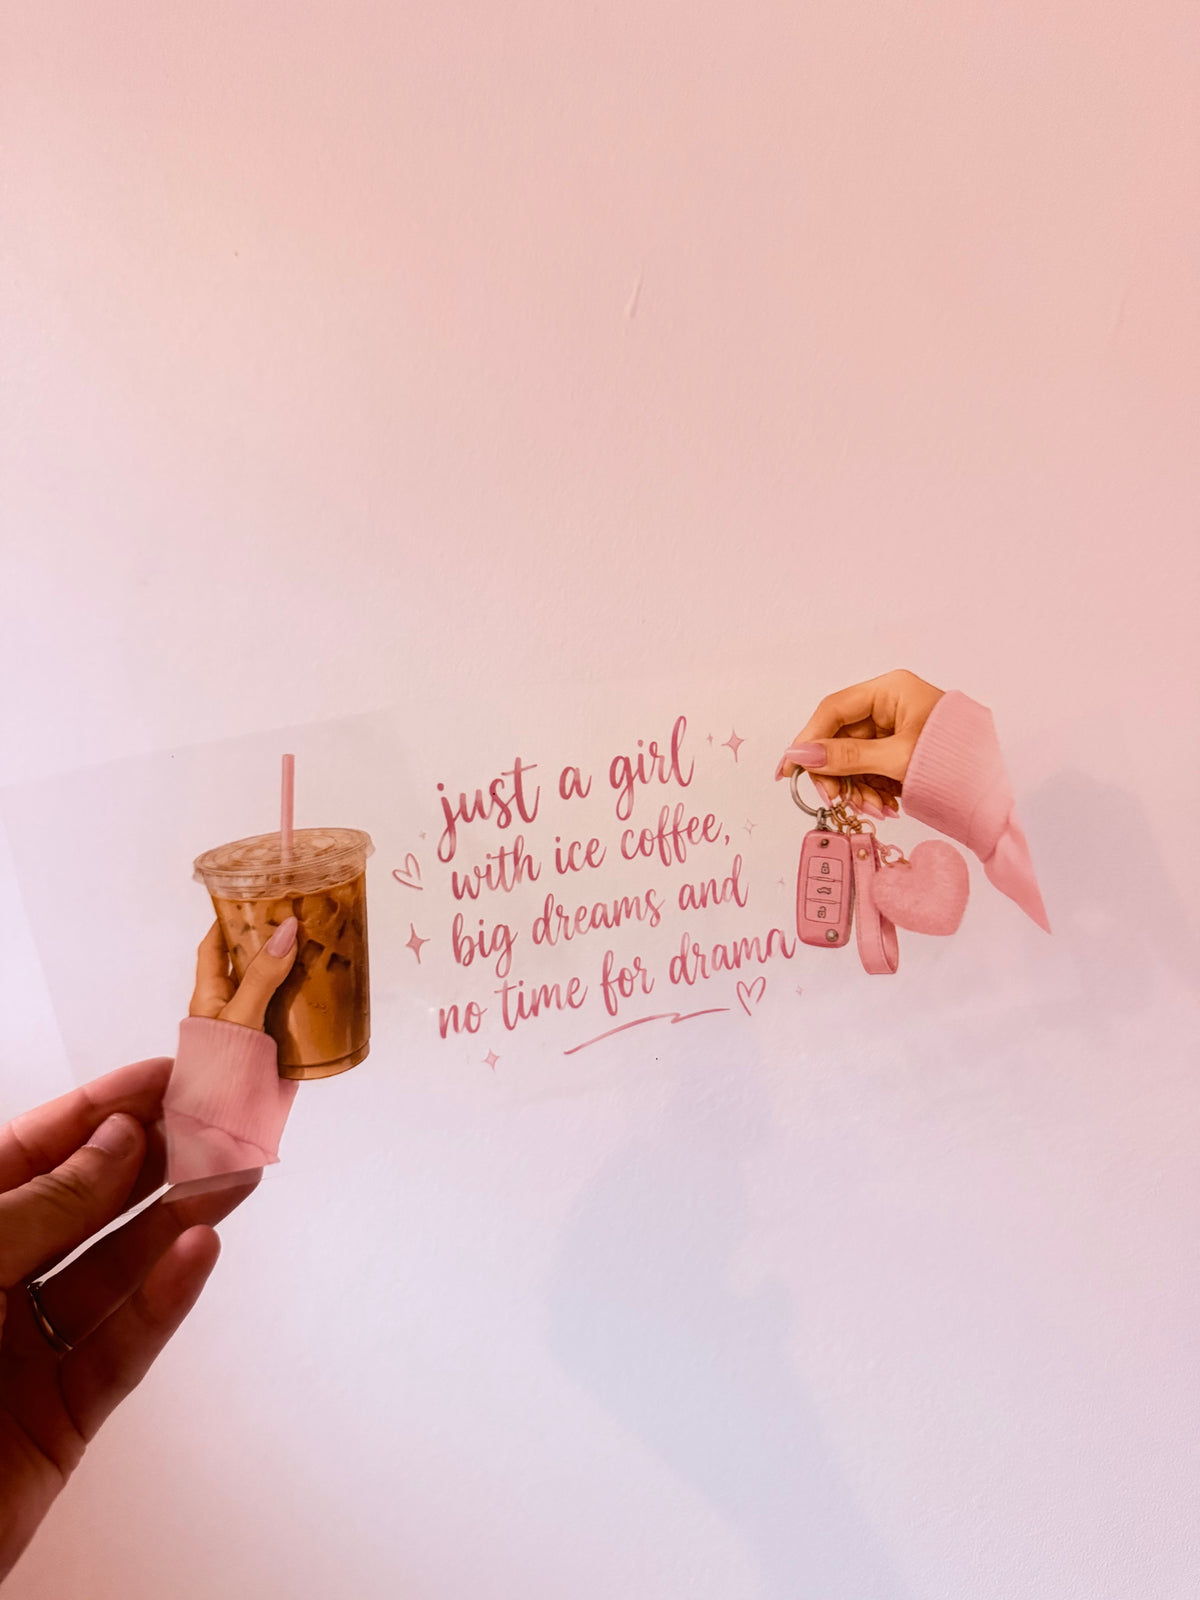 just a girl
with ice coffee,
big dreams and
no time for drama